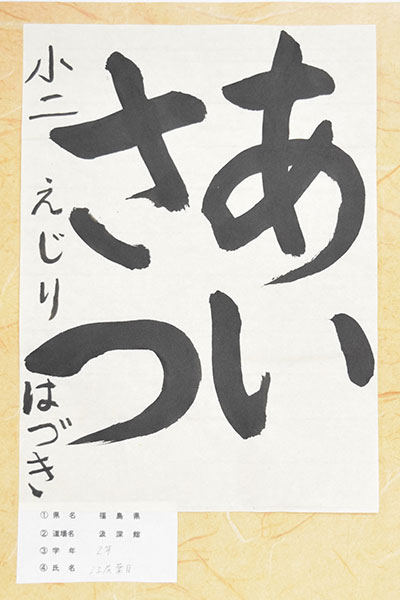 あい
さつ
小二 えじり はづき
① 県名 福島県
② 道場名 汲深館
③ 学年 2年
④ 氏名 江尻葉月